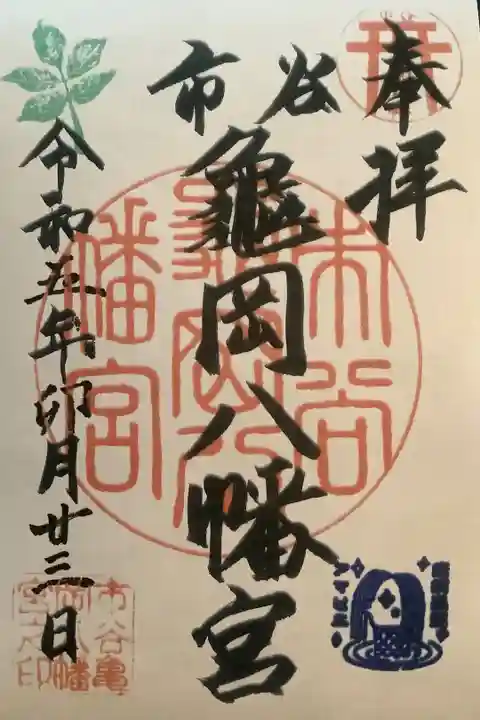 奉拝
市谷
龜岡八幡宮
令和五年卯月廿三日
市谷
龜岡八
幡宮
市谷亀
岡八幡
宮之印